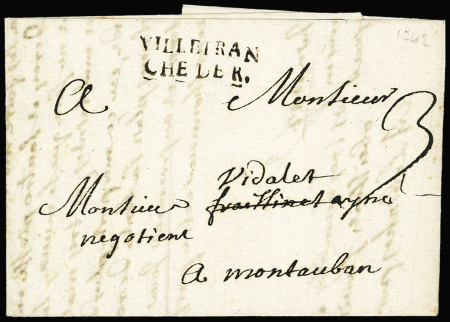 VILLEFRAN
CHE DE R.
1742
A Monsieur
3
Vidalet
Monsieur fraissinet ayné
negotient
A montauban